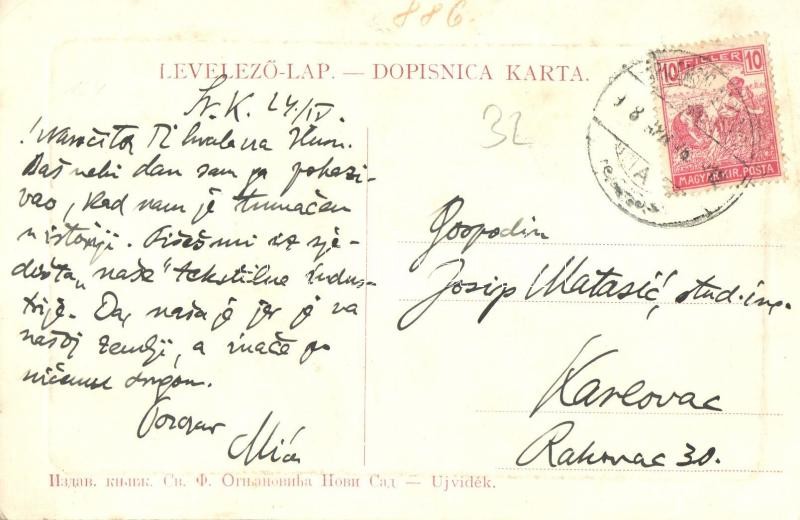 886.
LEVELEZŐ-LAP. — DOPISNICA KARTA.
FILLÉR
10 10
MAGYAR KIR. POSTA
32
Sr. K. 24/IV.
Naročito Ti hvala na
Baš neki dan sam ga pokazi-
vao, kad nam je tumačen
u istoriji. Pišeš mi iz sje-
dišta „naše" tekstilne indus-
trije. Da, naša je jer je na
našoj zemlji, a inače po
ničemu drugom.
Pozdrav
Mića
Gospodin
Josip Matasić, stud. ing.
Karlovac
Rakovac 30.
Издав. књиж. Св. Ф. Огњановића Нови Сад — Ujvidék.